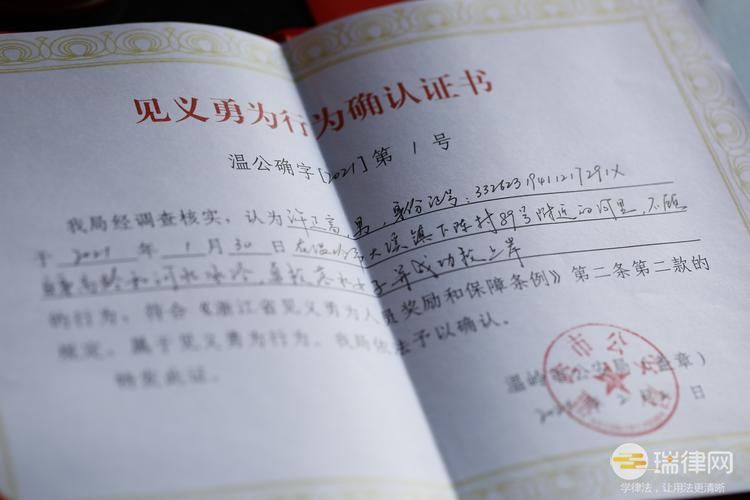 见义勇为行为确认证书
温公确字[2021]第 1 号
我局经调查核实，认为许 高，男，身份证号：33262319411217291X
于 2021 年 1 月 30 日在温岭市大溪镇下陈村89号附近的河里，不顾
自身高龄和河水冰冷，救落水女子并成功救上岸
的行为，符合《浙江省见义勇为人员奖励和保障条例》第二条第二款的
规定，属于见义勇为行为，我局依法予以确认。
特发此证。
温岭市公安局（盖章）
日
瑞律网
学律法，让用法更清晰